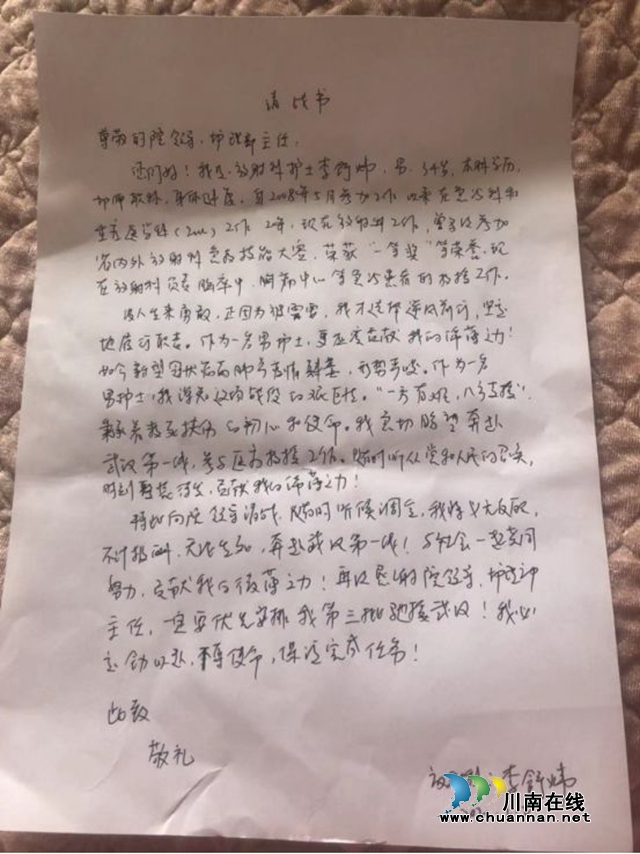 请战书
尊敬的院领导、护理部主任：
您们好！我是放射科护士李舒炜，男，34岁，本科学历，
护师职称，身体健康。自2008年5月参加工作以来在急诊科和
重症医学科（ICU）工作 2年，现在放射科工作，曾多次参加
省内外放射科急救技能大赛，荣获“一等奖”等荣誉，现
在放射科负责脑卒中、胸痛中心等急诊患者的救援工作。
人生来勇敢，正因为很需要，我才选择逆风前行，坚定
地履行职责。作为一名男护士，更应贡献我的绵薄之力！
如今新型冠状病毒肺炎疫情肆虐，形势严峻。作为一名
男护士，我深知这场战役的艰巨性。“一方有难，八方支援”，
秉承着救死扶伤的初心和使命。我迫切盼望奔赴
武汉第一线，参与医疗救援工作。随时听从党和人民的召唤，
时刻整装待发，贡献我的绵薄之力！
特此向院领导请战，随时听候调令，我将义无反顾，
不计报酬，无论生死，奔赴武汉第一线！与社会一起共同
努力，贡献我的微薄之力！再次恳请院领导、护理部
主任，一定要优先安排我第三批驰援武汉！我必
定全力以赴，不辱使命，保证完成任务！
此致
敬礼
李舒炜
川南在线
www.chuannan.net